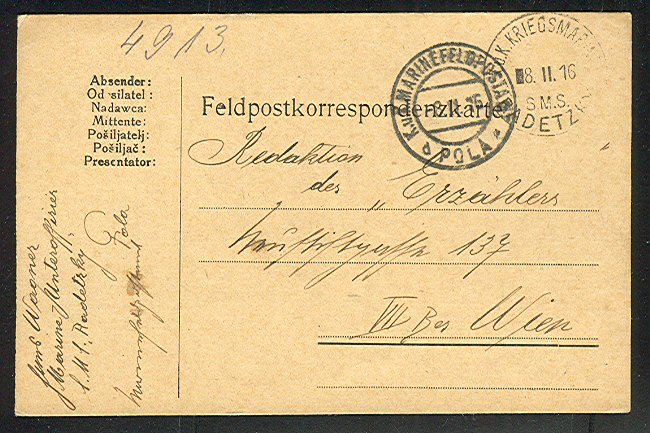 4913.
Absender:
Od silatel:
Nadawca:
Mittente:
Pošiljatelj:
Pošiljač:
Presentator:
Feldpostkorrespondenzkarte
K.u.K. MARINEFELDPOSTAMT
8.II.16
POLA
K.K. KRIEGSMARINE
8.II.16
S.M.S.
RADETZKY
Redaktion
des „Erzählers
Neustiftgasse 137
VII Bez Wien
Wagner
Marine Unteroffizier
S.M.S. Radetzky
Pola